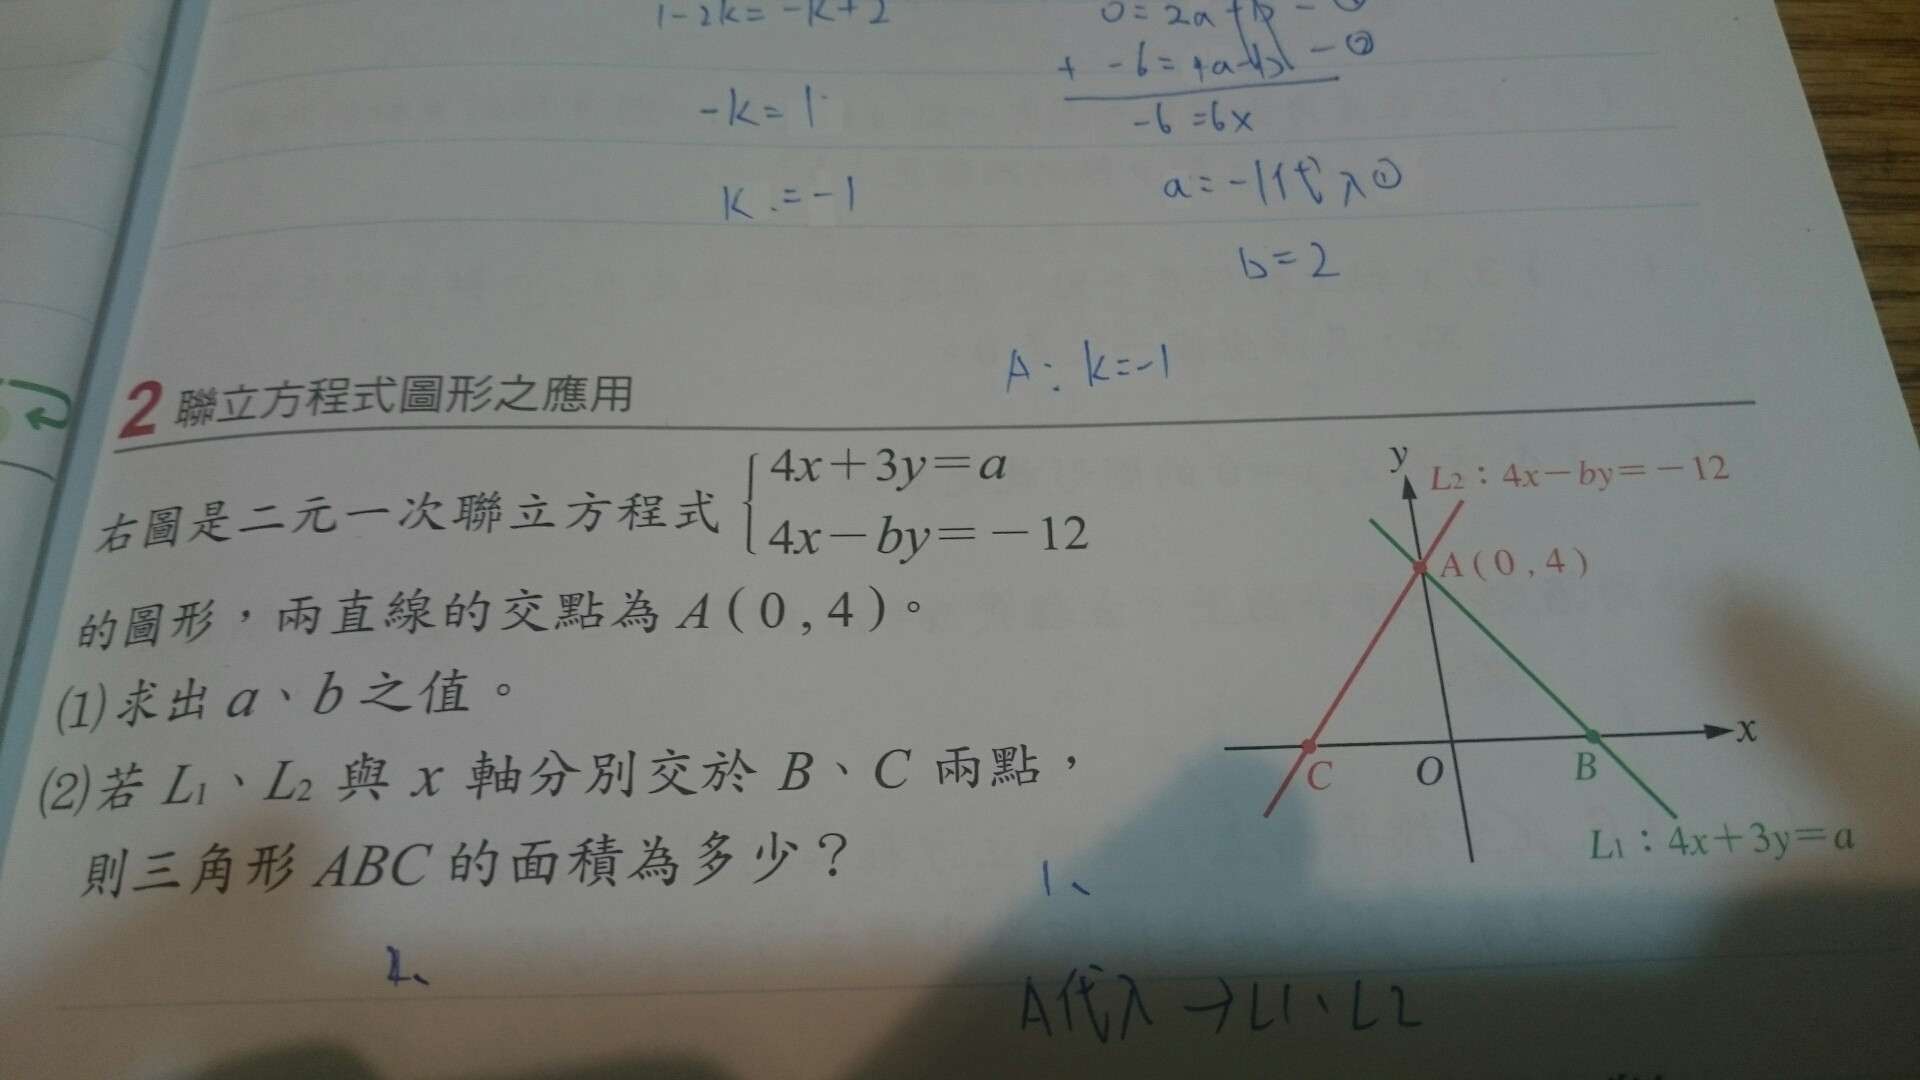 1-2k=-k+2
-k=1
k=-1
0=2a+b-①
+ -6=4a-b-②
-6=6x
a=-1代入①
b=2
A: k=-1
2 聯立方程式圖形之應用
右圖是二元一次聯立方程式 4x+3y=a
4x-by=-12
的圖形，兩直線的交點為A(0,4)。
(1)求出a、b之值。
(2)若L1、L2與x軸分別交於B、C兩點，
則三角形ABC的面積為多少？
y
L2：4x-by=-12
A(0,4)
x
C
O
B
L1：4x+3y=a
1、
2、
A代入→L1、L2